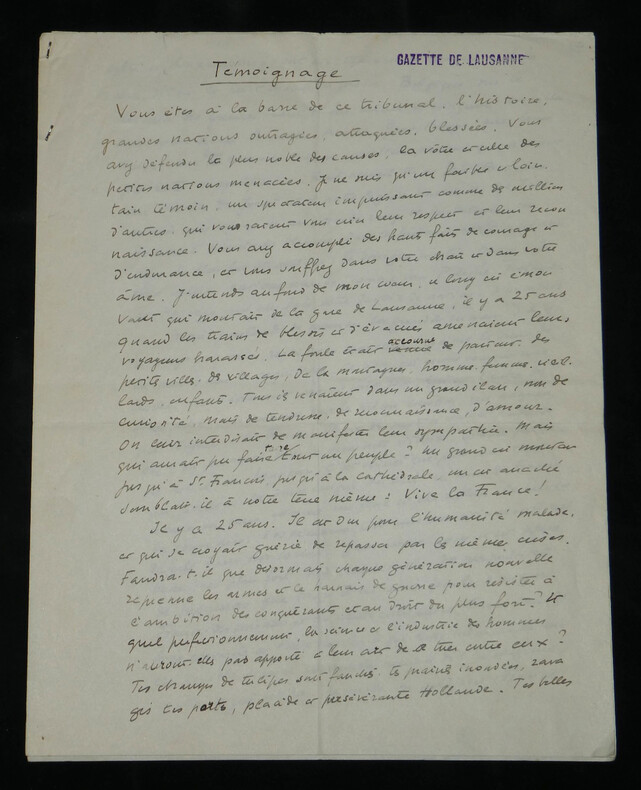 GAZETTE DE LAUSANNE
Temoignage
Vous êtes à la barre de ce tribunal, l'histoire,
grandes nations outragées, attaquées, blessées. Vous
avez défendu la plus noble des causes, la vôtre et celle des
petites nations menacées. Je ne suis qu'un faible et loin
tain témoin, un spectateur impuissant comme des milliers
d'autres, qui voudraient vous crier leur respect et leur recon
naissance. Vous avez accompli des hauts faits de courage et
d'endurance, et vous souffrez dans votre chair et dans votre
âme. J'entends au fond de mon cœur, ce long cri émou
vant qui montait de la gare de Lausanne, il y a 25 ans
quand les trains de blessés et d'évacués amenaient leurs
voyageurs harassés. La foule était accourue de partout, des
petites villes, des villages, de la montagne, hommes, femmes, vieil
lards, enfants. Tous ils venaient dans un grand élan, non de
curiosité, mais de tendresse, de reconnaissance, d'amour.
On leur interdisait de manifester leur sympathie. Mais
qui aurait pu faire taire tout un peuple? Un grand cri montait
jusqu'à St. François, jusqu'à la cathédrale, un cri arraché
semblait-il à notre terre même: Vive la France!
Il y a 25 ans. Il est dur pour l'humanité malade,
et qui se croyait guérie de repasser par les mêmes crises.
Faudra-t-il que désormais chaque génération nouvelle
reprenne les armes et le harnais de guerre pour résister à
l'ambition des conquérants et au droit du plus fort? Et
quel perfectionnement, la science et l'industrie des hommes
n'auront-elles pas apporté à leur art de se tuer entre eux?
Tes champs de tulipes sont fauchés, tes plaines inondées, rava
gés tes ports, placide et persévérante Hollande. Tes belles